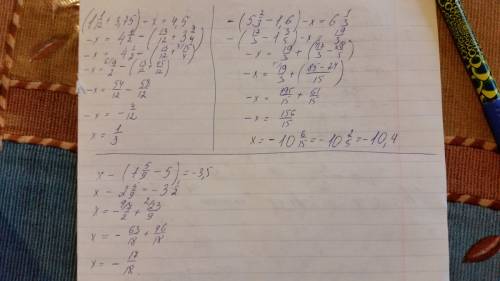 (1 1/12 + 3,75) - x = 4,5
-x = 4 1/2 - (13/12 + 3 3/4)
-x = 4 1/2 - (13/12 + 15/4)
-x = 9/2 - (13/12 + 45/12)
-x = 54/12 - 58/12
-x = - 4/12
x = 1/3
-(5 2/3 - 1,6) - x = 6 1/3
-x = 19/3 + (17/3 - 8/5)
-x = 19/3 + (85-24/15)
-x = 95/15 + 61/15
-x = 156/15
x = -10 6/15 = -10 2/5 = -10,4
x - (7 5/9 - 5) = -3,5
x - 2 5/9 = -3 1/2
x = - 7/2 + 23/9
x = - 63/18 + 46/18
x = - 17/18